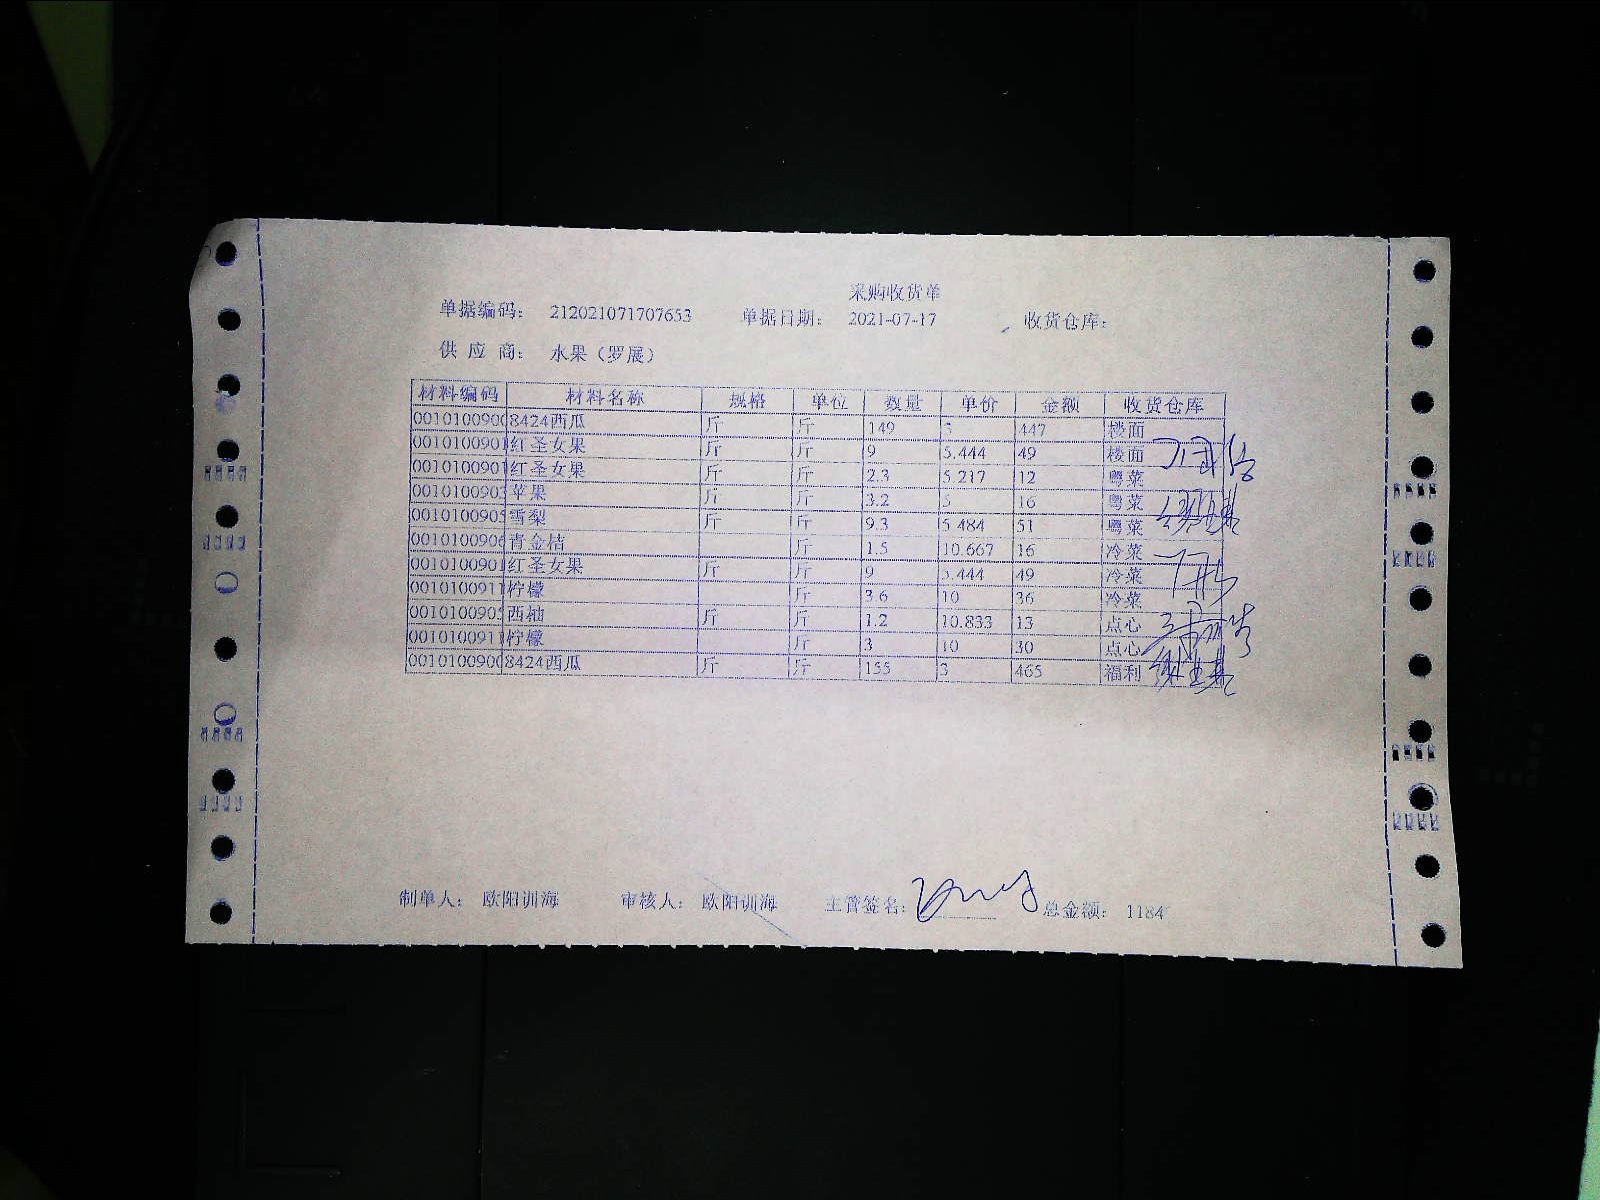 采购收货单
单据编码： 212021071707653 单据日期： 2021-07-17 收货仓库：
供 应 商： 水果（罗展）
材料编码 材料名称 规格 单位 数量 单价 金额 收货仓库
001010090 8424西瓜 斤 斤 149 3 447 楼面
001010090 红圣女果 斤 斤 9 5.444 49 楼面
001010090 红圣女果 斤 斤 2.3 5.217 12 粤菜
001010090 苹果 斤 斤 3.2 5 16 粤菜
0010100905 雪梨 斤 斤 9.3 5.484 51 粤菜
001010090 青金桔 斤 1.5 10.667 16 冷菜
001010090 红圣女果 斤 斤 9 5.444 49 冷菜
001010091 柠檬 斤 3.6 10 36 冷菜
001010090 西柚 斤 斤 1.2 10.833 13 点心
001010091 柠檬 斤 3 10 30 点心
001010090 8424西瓜 斤 斤 155 3 465 福利
制单人： 欧阳训海 审核人： 欧阳训海 主管签名： 总金额： 1184